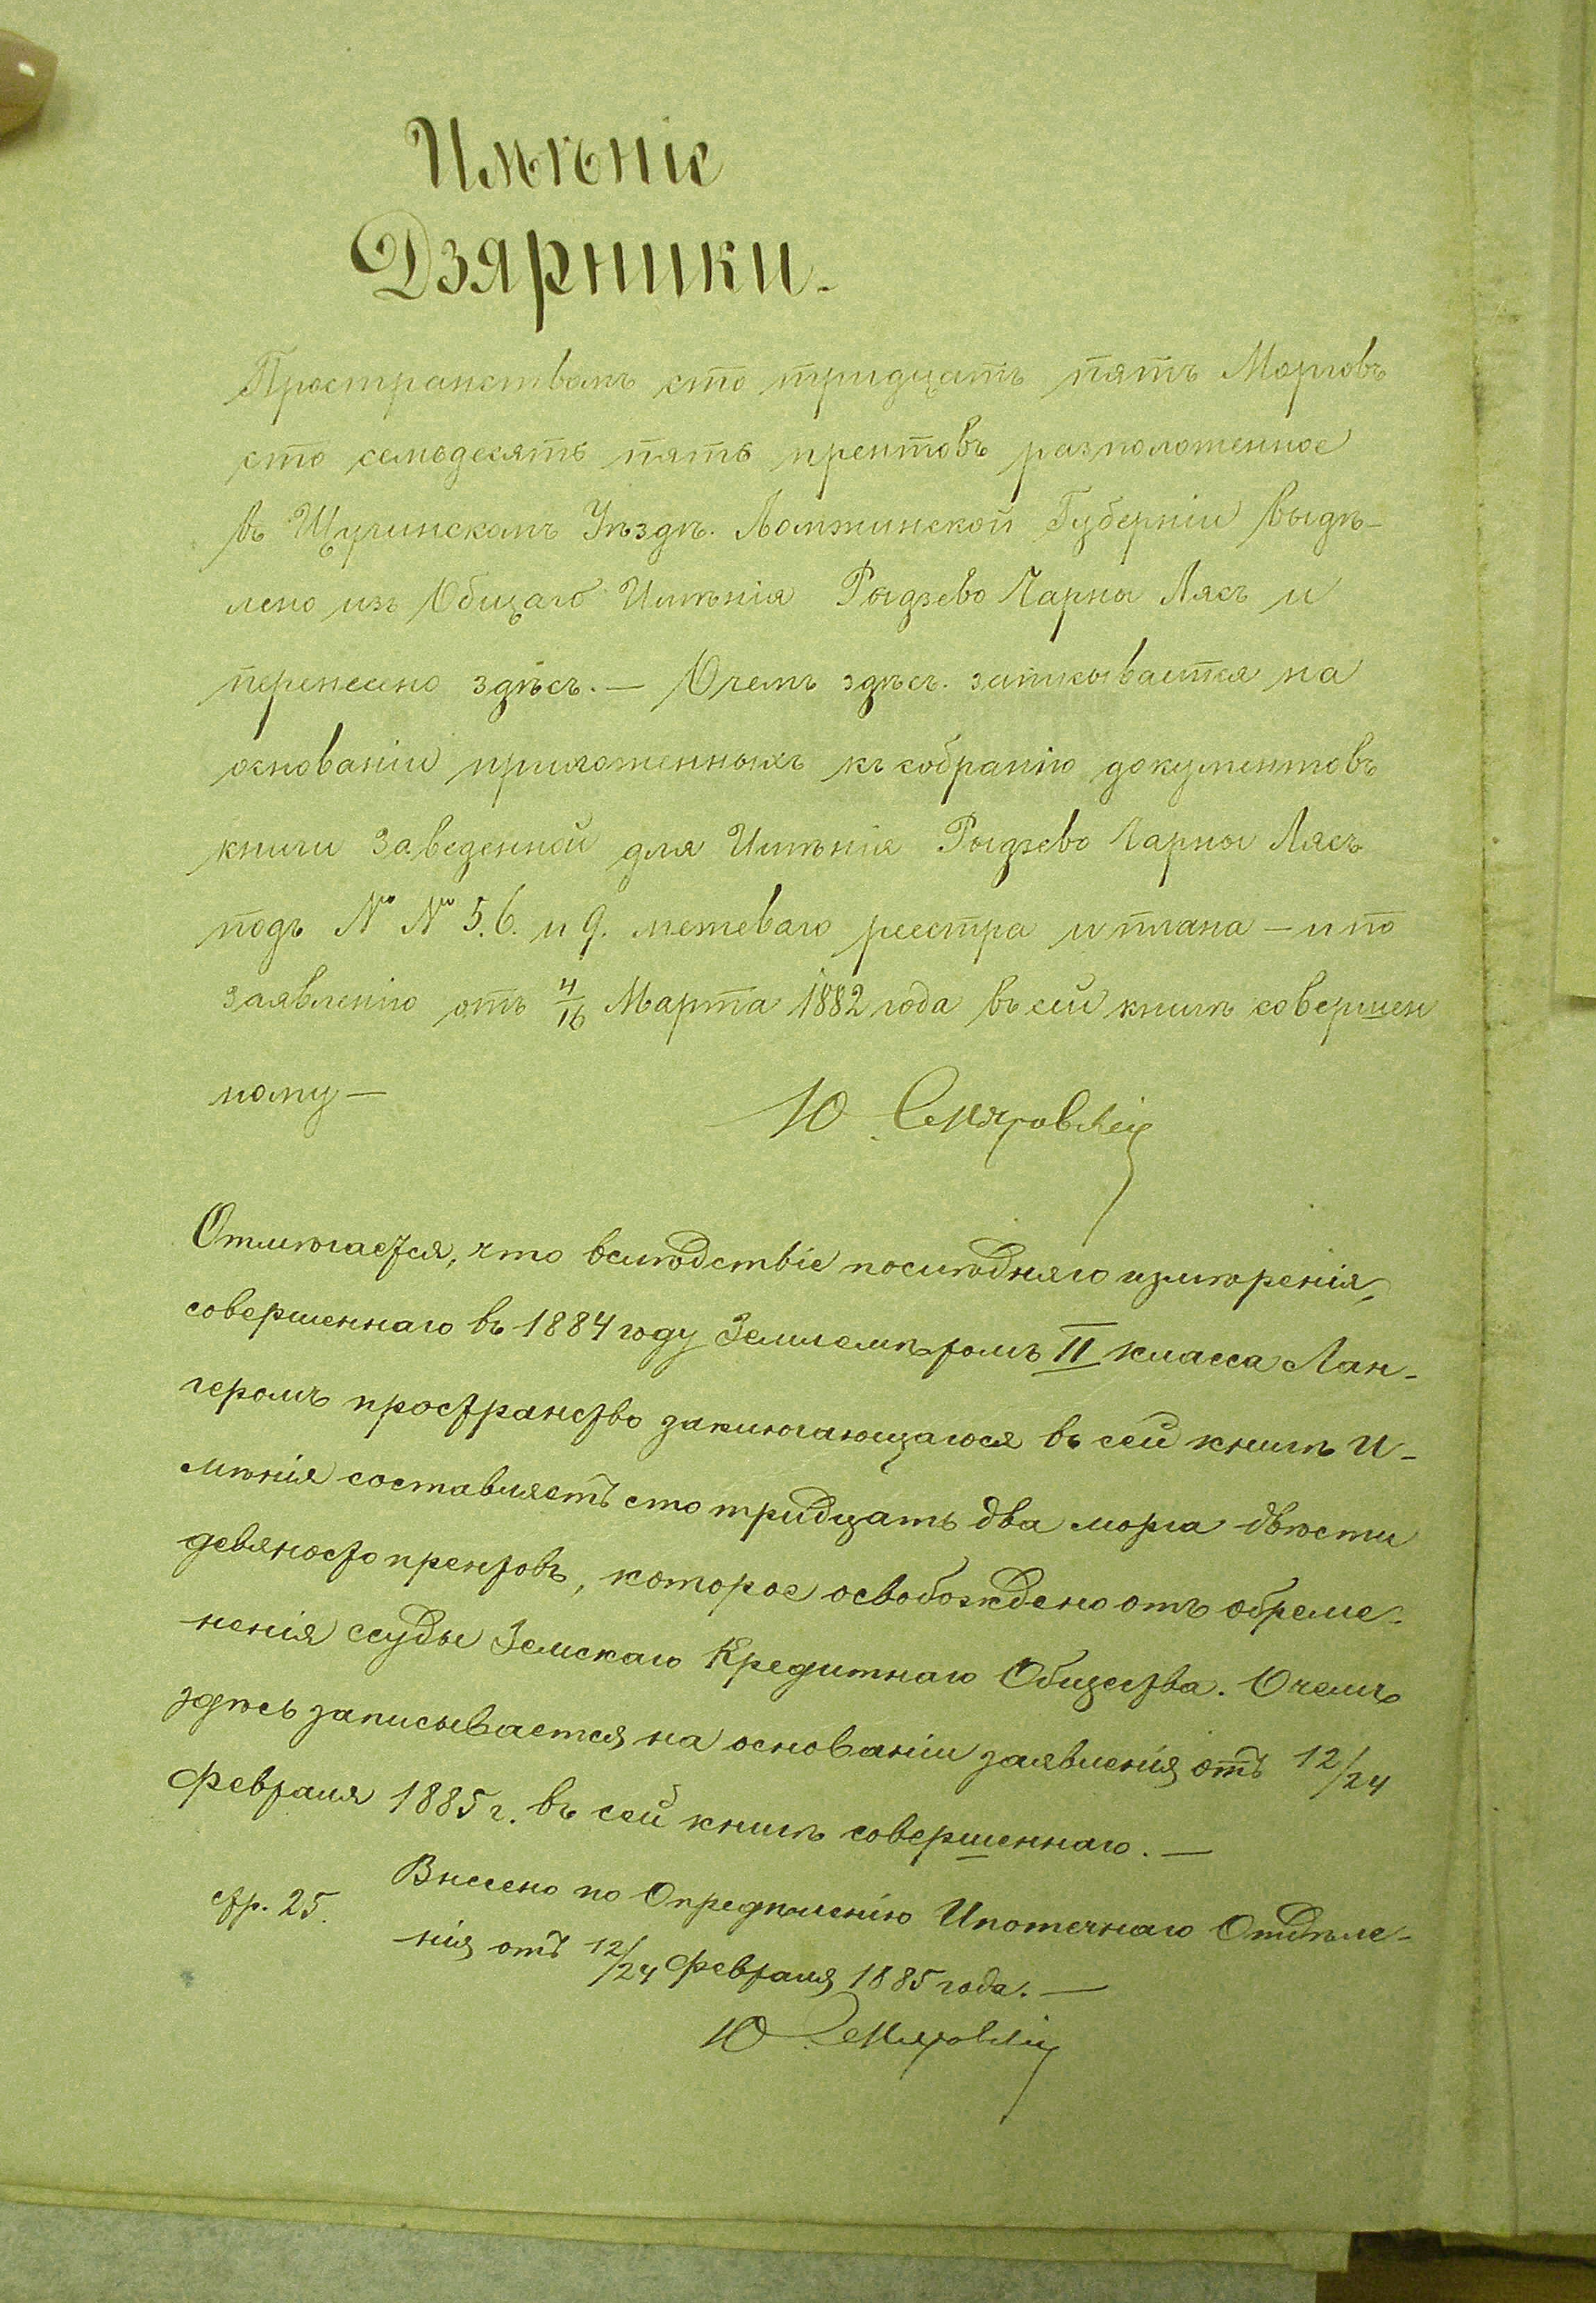 Имѣніе
Дзярники.
Пространствомъ сто тридцать пять Морговъ
сто семьдесятъ пять прентовъ разположенное
въ Щучинскомъ Уѣздѣ. Ломжинской Губерніи выдѣ-
лено изъ Общаго Имѣнія Рыдзево Чарны Лясъ и
перенесено здѣсъ. — О чемъ здѣсъ. записывается на
основаніи приложенныхъ къ собранію документовъ
книги заведенной для Имѣнія Рыдзево Чарны Лясъ
подъ № № 5. 6. и 9. межеваго реестра и плана — и по
заявленію отъ 4/16 Марта 1882 года въ сей книгѣ совершен
ному —
Ю.
Отмѣчается, что вслѣдствіе послѣдняго измѣренія,
совершеннаго въ 1884 году Землемѣромъ II класса Лан-
геромъ пространство заключающагося въ сей книгѣ И-
мѣнія составляетъ сто тридцать два морга двѣсти
девяносто прентовъ, которое освобождено отъ обреме-
ненія ссуды Земскаго Кредитнаго Общества. О чемъ
здѣсь записывается на основаніи заявленія отъ 12/24
Февраля 1885 г. въ сей книгѣ совершеннаго. —
стр. 25. Внесено по Опредѣленію Ипотечнаго Отдѣле-
нія отъ 12/24 Февраля 1885 года. —
Ю.